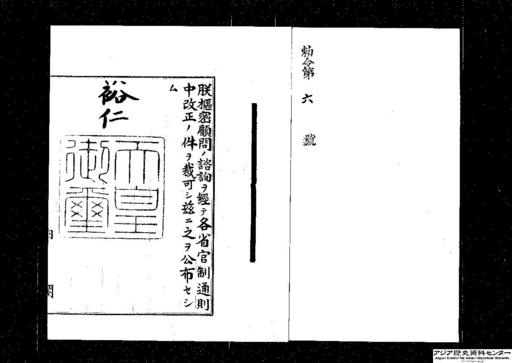 勅令第六號
朕樞密顧問ノ諮詢ヲ經テ各省官制通則
中改正ノ件ヲ裁可シ茲ニ之ヲ公布セシ
ム
裕仁
天皇
御璽
内閣
アジア歴史資料センター
Japan Center for Asian Historical Records